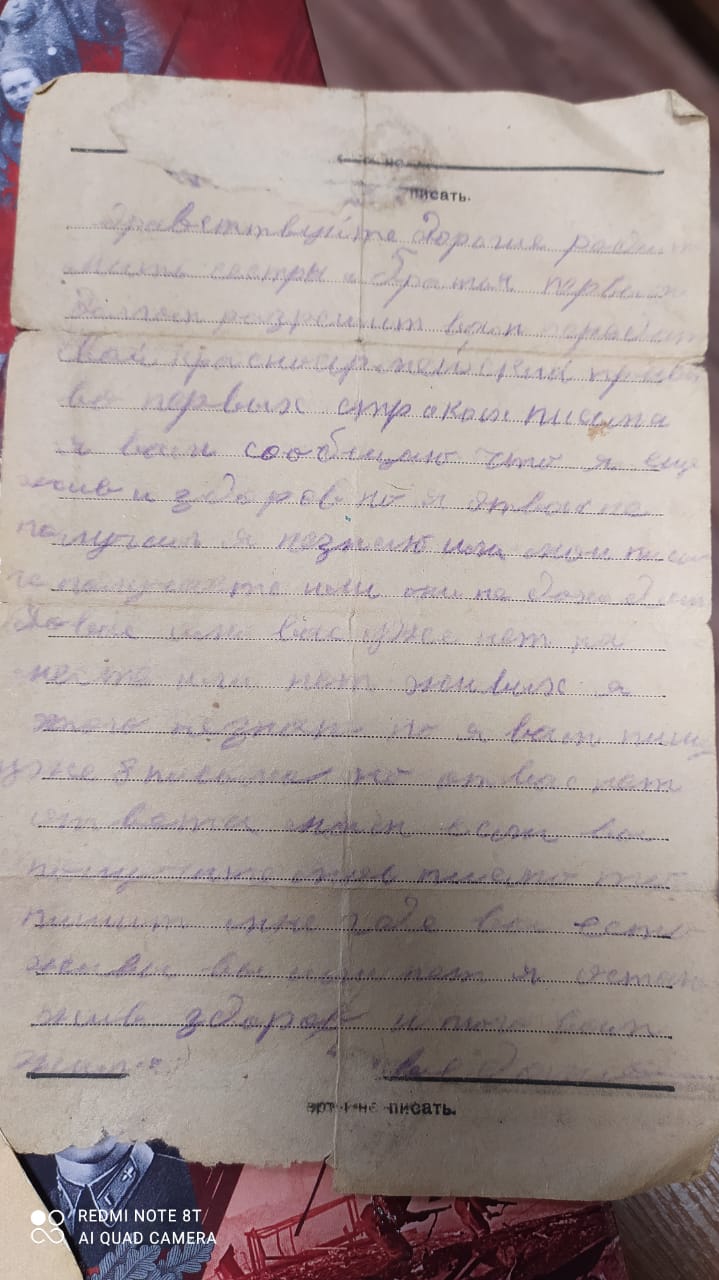 писать.
Здравствуйте дорогие роди
мать сестры и братья первым
долгом разрешит вам передат
свой красноармейский приве
во первых строках писма
я вам сообщаю что я еще
жив и здоров но я от вас не
получаю я незнаю или мои писм
не получаете или они не доходят
до вас или вас уже нет на
месте или нет живых я
этого незнаю но я вам пишу
уже 8 писем но от вас нет
ответа мне если вы
получите мое писмо то
пишит мне где вы есть
живы вы или нет я остаю
жив здоров и того вам
желаю
черты не писать.
REDMI NOTE 8T
AI QUAD CAMERA